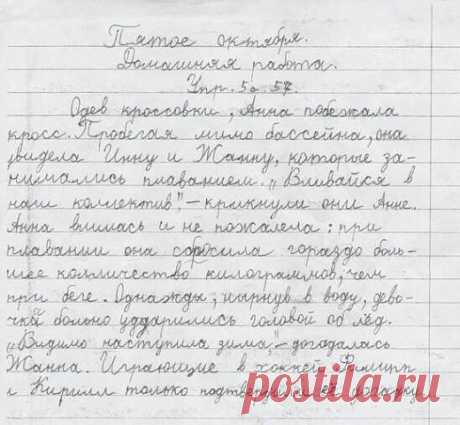 Пятое октября.
Домашняя работа.
Упр. 5а. 57.
Одев кроссовки, Анна побежала
кросс. Пробегая мимо бассейна, она
увидела Инну и Жанну, которые за-
нимались плаванием. „Вливайся в
наш коллектив", - крикнули они Анне.
Анна влилась и не пожалела: при
плавании она сбросила гораздо боль-
шее количество килограммов, чем
при беге. Однажды, нырнув в воду, дево-
чки больно ударились головой об лёд.
„Видимо наступила зима", - догадалась
Жанна. Играющие в хоккей Филипп
и Кирилл только её догадку
postila.ru